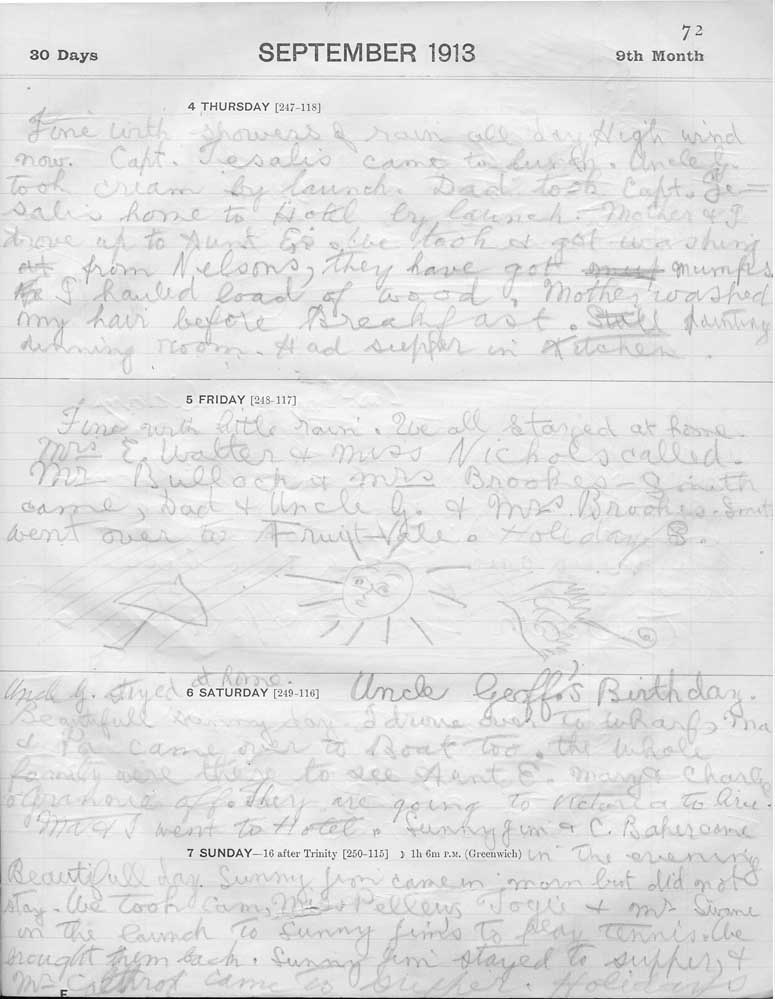 72
30 Days SEPTEMBER 1913 9th Month
4 THURSDAY [247-118]
Fine with showers of rain all day High wind
now. Capt. came to lunch. Uncle G.
took cream by launch. Dad took Capt.
home to Hotel by launch. Mother & I
drove up to Aunt E's we took & got washing
from Nelsons, they have got mumps
I hauled load of wood, Mother washed
my hair before Breakfast. Still painting
dinning room. Had supper in Kitchen.
5 FRIDAY [248-117]
Fine with little rain. We all stayed at home.
Mrs E. Walter & Miss Nichols called.
Mr Bullock & Mrs Brookes-Smith
came, Dad & Uncle G. & Mrs. Brookes-Smith
went over to Fruit-Vale. Holiday S.
Uncle G. styed at home.
6 SATURDAY [249-116] Uncle Geoff.'s Birthday.
Beautifull sunny day. I drove over to wharf, Ma
& Pa came over to Boat too. the whole
family were there to see Aunt E. Mary & Charly
& off. They are going to Victoria to live.
Ma & I went to Hotel. Sunny Jim & C. Baker come
in the evening
7 SUNDAY—16 after Trinity [250-115] ☽ 1h 6m P.M. (Greenwich)
Beautifull day. Sunny Jim came in morn but did not
stay. We took Cam, Pellew, & Mr
in the launch to Sunny Jim's to play tennis. We
brought them back. Sunny Jim stayed to supper, &
Mr came to supper. Holidays
F